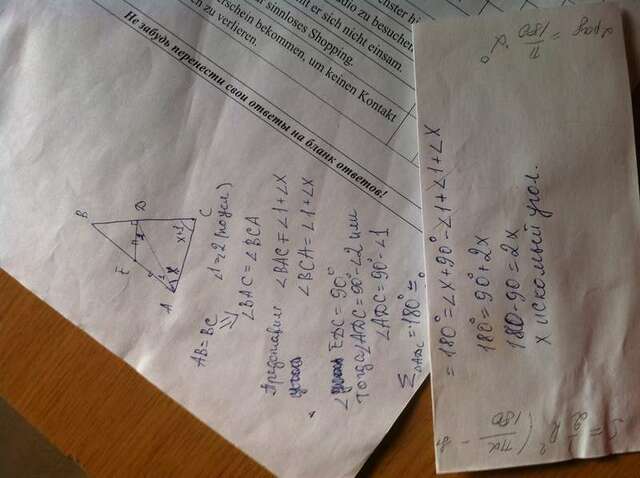 chster hi
adio zu besuchen
nt er sich nicht einsam.
sinnloses Shopping.
tschein bekommen, um keinen Kontakt
zu verlieren.
Не забудь перенести свои ответы на бланк ответов!
B
E
D
A
C
1
2
x
x+1
AB = BC
∠1 = 2 (по усл)
⇓
∠BAC = ∠BCA
Представим ∠BAC = ∠1+∠x
∠BCA = ∠1+∠x
∠EDC = 90°
Тогда ∠ADC = 90°-∠2 или
∠ADC = 90°-∠1
Σ∆ADC = 180° =
= 180° = ∠x+90°-∠1+∠1+∠x
180° = 90°+2x
180-90 = 2x
x искомый угол.
α рад = π/180 α°